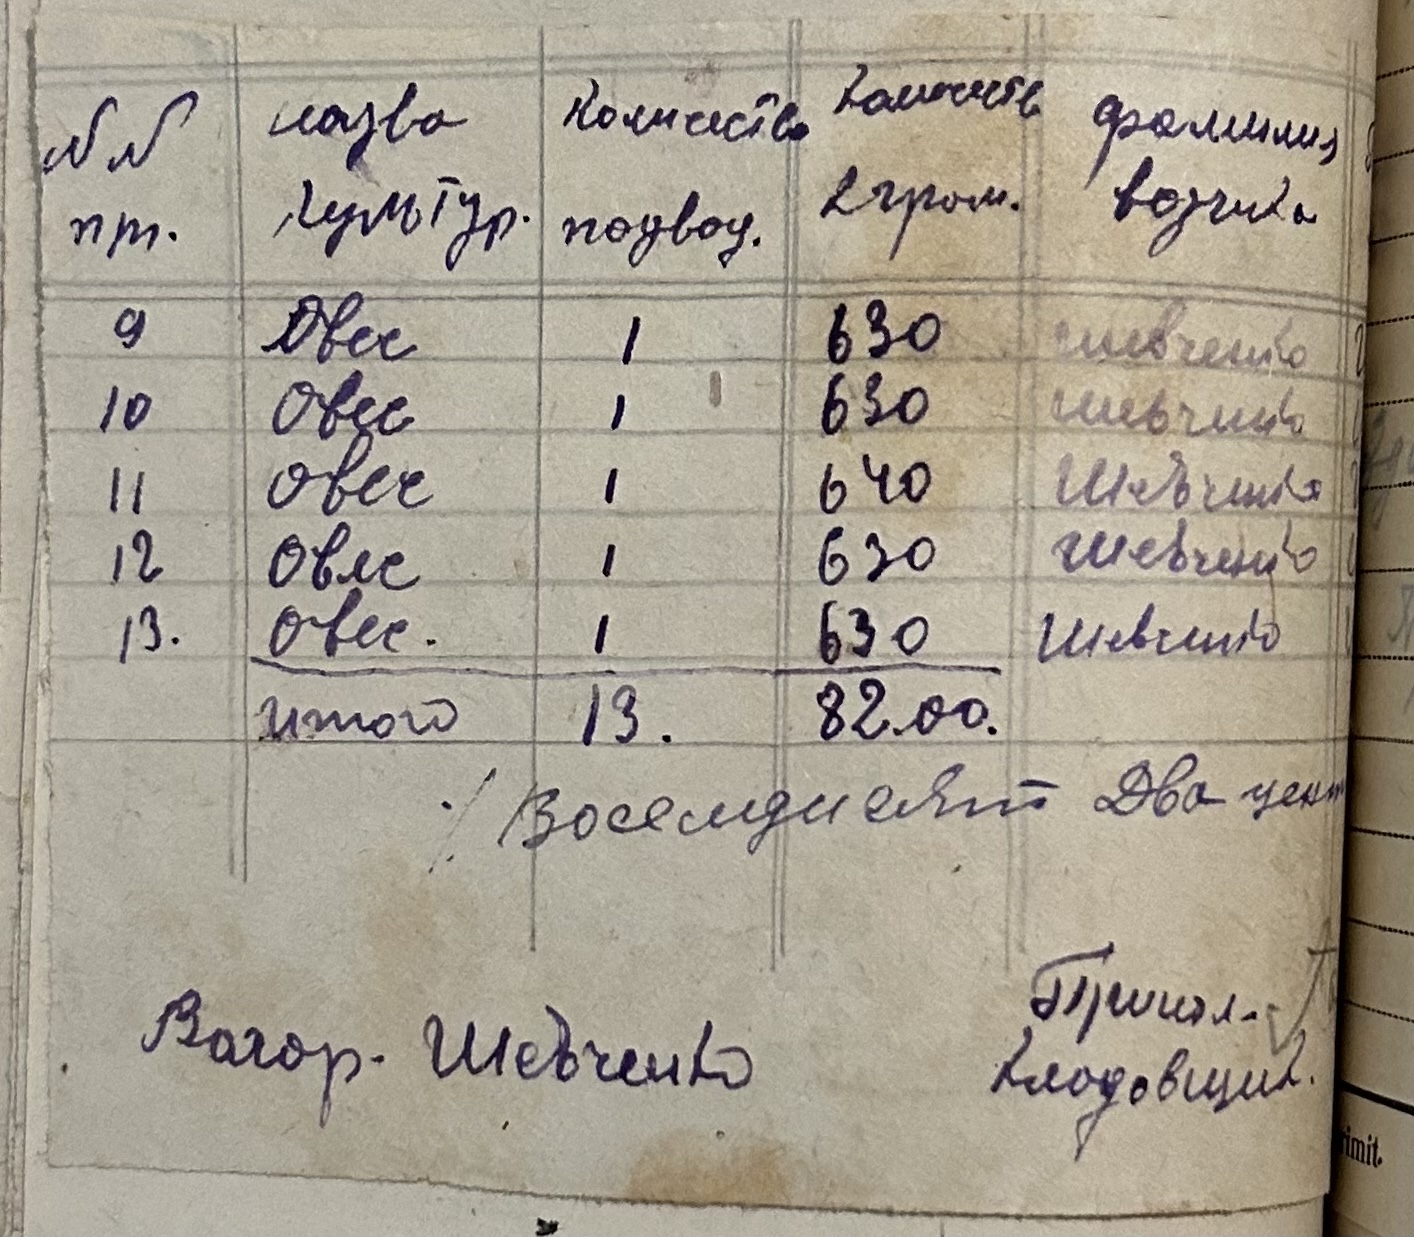 №№ назва Количество Количеств фамилия
пп. культур. подвод. кгром. возчика
9 Овес 1 630 Шевченко
10 Овес 1 630 Шевченко
11 Овес 1 640 Шевченко
12 Овес 1 630 Шевченко
13. Овес. 1 630 Шевченко
итого 13. 82.00.
/Восемдисят Два цент
Принял-
Вагар. Шевченко
кладовщик.
imit.